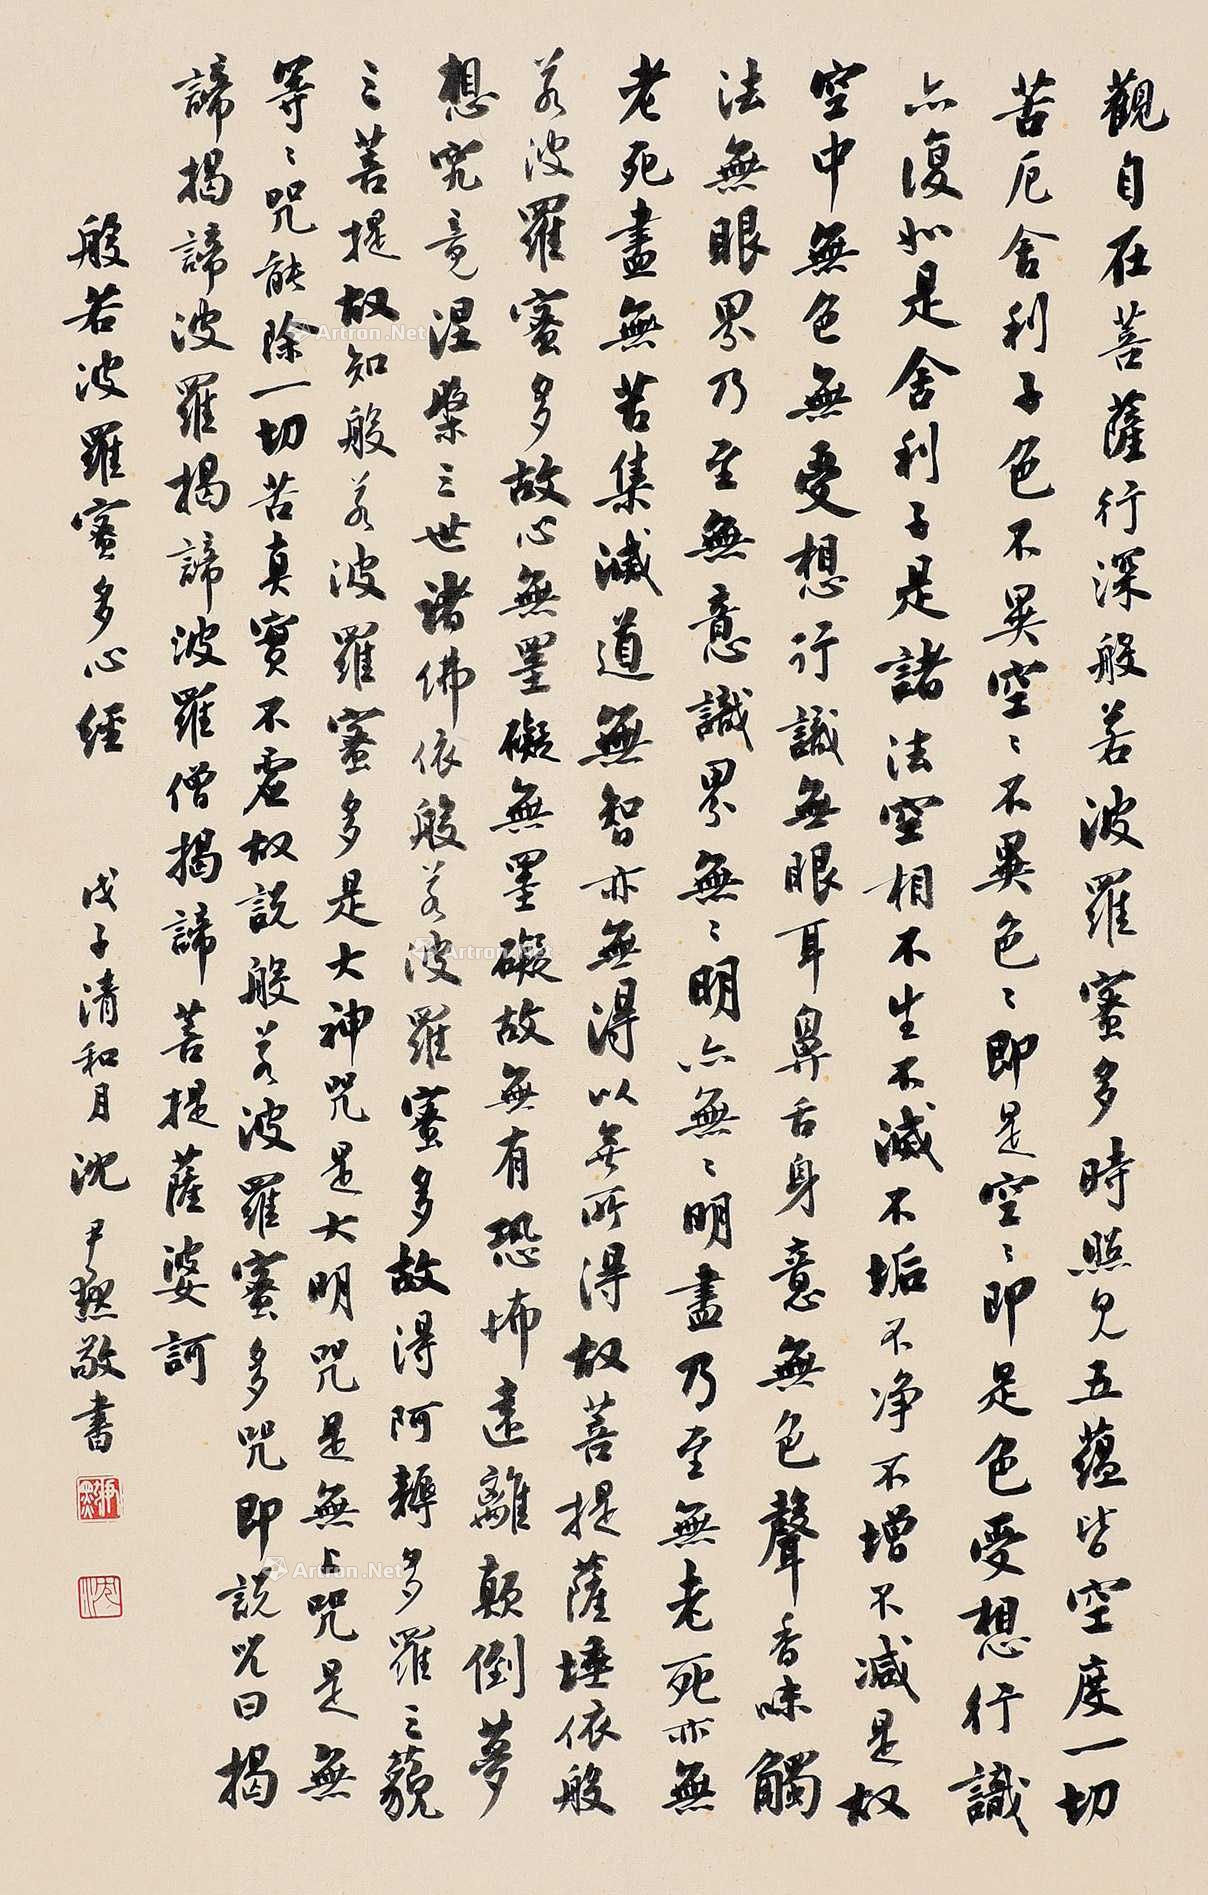 觀自在菩薩行深般若波羅蜜多時照見五蘊皆空度一切
苦厄舍利子色不異空〻不異色〻即是空〻即是色受想行識
亦復如是舍利子是諸法空相不生不滅不垢不净不增不減是故
空中無色無受想行識無眼耳鼻舌身意無色聲香味觸
法無眼界乃至無意識界無〻明亦無〻明盡乃至無老死亦無
老死盡無苦集滅道無智亦無得以無所得故菩提薩埵依般
若波羅蜜多故心無罣礙無罣礙故無有恐怖遠離顛倒夢
想究竟涅槃三世諸佛依般若波羅蜜多故得阿耨多羅三藐
三菩提故知般若波羅蜜多是大神咒是大明咒是無上咒是無
等〻咒能除一切苦真實不虛故説般若波羅蜜多咒即説咒曰揭
諦揭諦波羅揭諦波羅僧揭諦菩提薩婆訶
般若波羅蜜多心經 戊子清和月沈尹默敬書
沈
Artron.Net
Artron.Net
Artron.Net